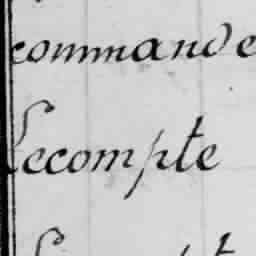 commande
Lecompte